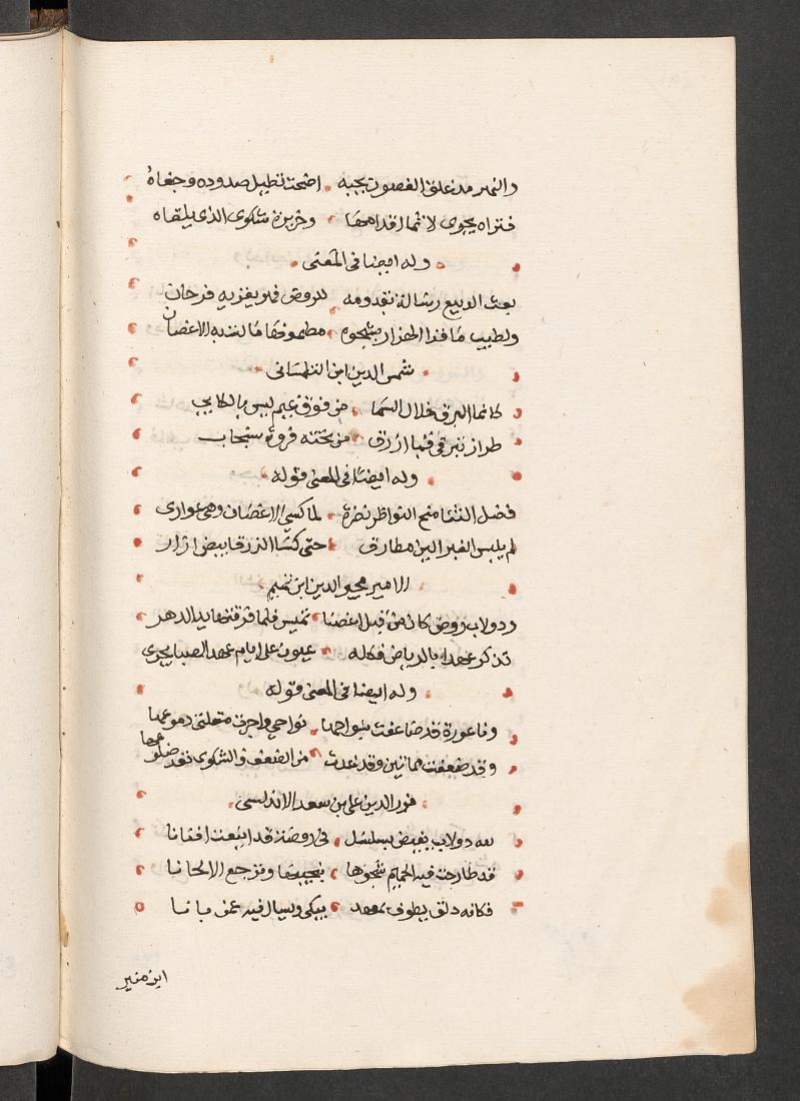 والنهر مذ علق الغصون بحبه اضحت تطيل صدوده وجفاهُ
فتراه يجرى لاثما اقدامها وخريره شكوى الذى يلقاه
وله ايضا فى المعنى
بعث الربيع رسالة بقدومه للروض فهو بقربه فرحان
ولطيب ما قرا الهزار بشجوه مطمونها مالت به الاغصان
شمس الدين ابن التلمسانى
كانما البرق خلال السما من فوق غيم ليس بالكابى
طراز تبر فى قبا ازرق من تحته فروة سنجاب
وله ايضا فى المعنى قوله
فضل الشتا منح النواظر نضرة لما كسى الاغصان وهى عوارى
لم يلبس الغبر البرا مطارق حتى كسا الزرقا بيض ازار
الامير مجير الدين ابن تميم
ودولاب روض كان من قبل اغصنا تميس فلما فرقتها يد الدهر
تذكر عهدا بالرياض فكله عيون على ايام عهد الصبا يجرى
وله ايضا فى المعنى قوله
وناعورة قد ضاعفت بنواحها نواحى واجرت مقلتى دموعها
وقد ضعفت مما تين وقد غدت من الضعف والشكوى تعد ضلوعها
نور الدين على بن سعد الاندلسى
لله دولاب يفيض بسلسل فى روضة قد اينعت افنانا
قد طارحت فيه الحمايم شجوها بنحيبها وترجع الالحانا
فكانه دلق يطوف بمعهد يبكى ويسال فيه عمن بانا
ابن منير